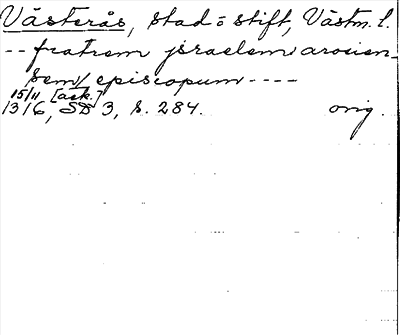 Västerås, stad o stift, Västm. l.
-- fratrem jsraelem arosien-
sem episcopum ----
15/11 [ack.]
1316, SD 3, s. 284. orig.